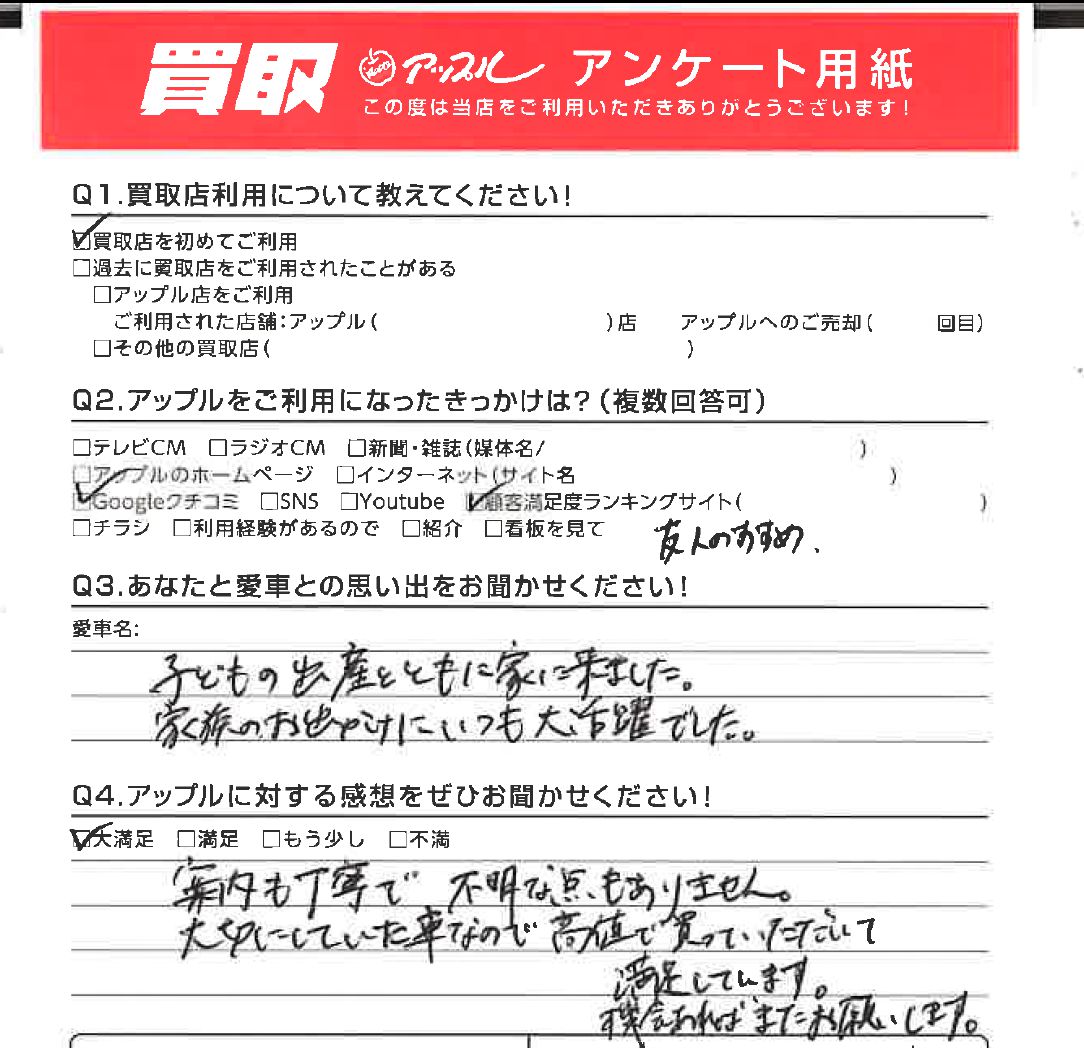 買取 アップル アンケート用紙
この度は当店をご利用いただきありがとうございます!
Q1.買取店利用について教えてください!
☑買取店を初めてご利用
□過去に買取店をご利用されたことがある
□アップル店をご利用
ご利用された店舗:アップル( )店 アップルへのご売却( 回目)
□その他の買取店( )
Q2.アップルをご利用になったきっかけは?(複数回答可)
□テレビCM □ラジオCM □新聞・雑誌(媒体名/ )
□アップルのホームページ □インターネット(サイト名 )
☑Googleクチコミ □SNS □Youtube ☑顧客満足度ランキングサイト( )
□チラシ □利用経験があるので □紹介 □看板を見て
友人のおすすめ.
Q3.あなたと愛車との思い出をお聞かせください!
愛車名:
子どもの出産とともに家に来ました。
家族のお出かけにいつも大活躍でした。
Q4.アップルに対する感想をぜひお聞かせください!
☑大満足 □満足 □もう少し □不満
案内も丁寧で 不明な点もありません。
大切にしていた車なので高値で買っていただいて
満足しています。
機会あればまたお願いします。